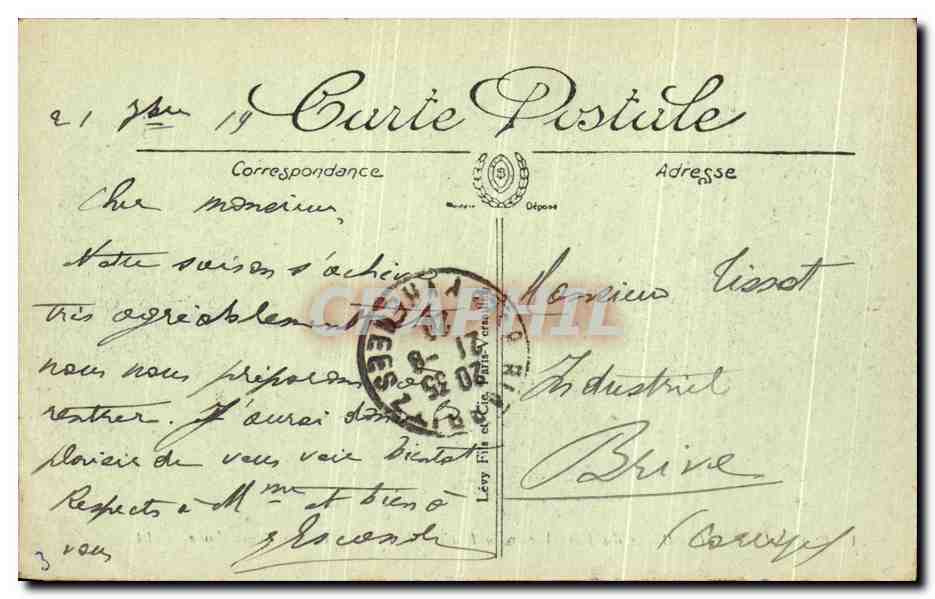 21 7bre 19
Carte Postale
Correspondance
Adresse
Déposé
Cher monsieur,
Notre saison s'achève
très agréablement et
nous nous préparons à
rentrer. J'aurai donc
plaisir de vous voir bientot
Respects à Mme et bien à
vous
3
Monsieur Tissot
Industriel
Brive
(Corrèze)
Lévy Fils et Cie, Paris-Versailles
BIARRITZ
20 35
21 -9
PYRENEES
CPAPHIL